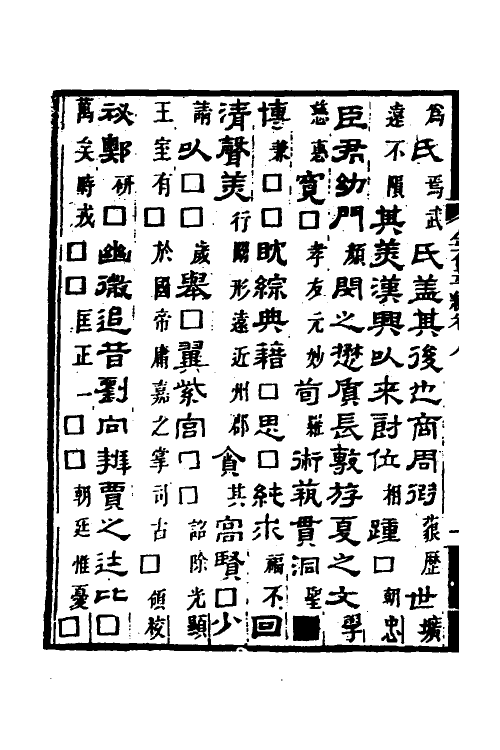 為氏焉武氏蓋其後也商周假藐歷世壙
遠不隕其美漢興以來爵位相踵□朝忠
臣君幼門顏閔之懋質長敷游夏之文學
慈惠寬□孝友元妙苟羅術藝貫洞聖■
博兼□□耽綜典籍□思□純求福不回
清聲美行闡形遠近州郡貪其高賢□少
請以□□歲舉□翼紫宮□□詔除光顯
王室有□□於國帝庸嘉之掌司古□領校
秘鄭研□幽微追昔劉向辯賈之徒比□
萬矣時戎□□匡正一□□朝廷惟憂□